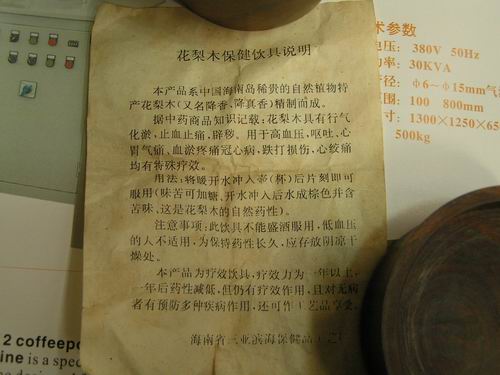 花梨木保健饮具说明
本产品系中国海南岛稀贵的自然植物特
产花梨木(又名降香、降真香)精制而成。
据中药商品知识记载,花梨木具有行气
化淤,止血止痛,辟秽。用于高血压,呕吐,心
胃气痛、血淤疼痛冠心病,跌打损伤,心绞痛
均有特殊疗效。
用法:将暖开水冲入壶(杯)后片刻即可
服用(味苦可加糖、开水冲入后水成棕色并含
苦味、这是花梨木的自然药性)。
注意事项:此饮具不能盛酒服用,低血压
的人不适用,为保持药性长久,应存放阴凉干
燥处。
本产品为疗效饮具,疗效力为一年以上,
一年后药性减低,但仍有疗效作用,且对无病
者有预防多种疾病作用,还可作工艺品享受。
海南省三亚滨海保健品工艺厂
术参数
电压: 380V 50Hz
功率: 30KVA
径: φ6~φ15mm气
围: 100 800mm
寸: 1300×1250×65
500kg
2 coffeepo
ine is a spec